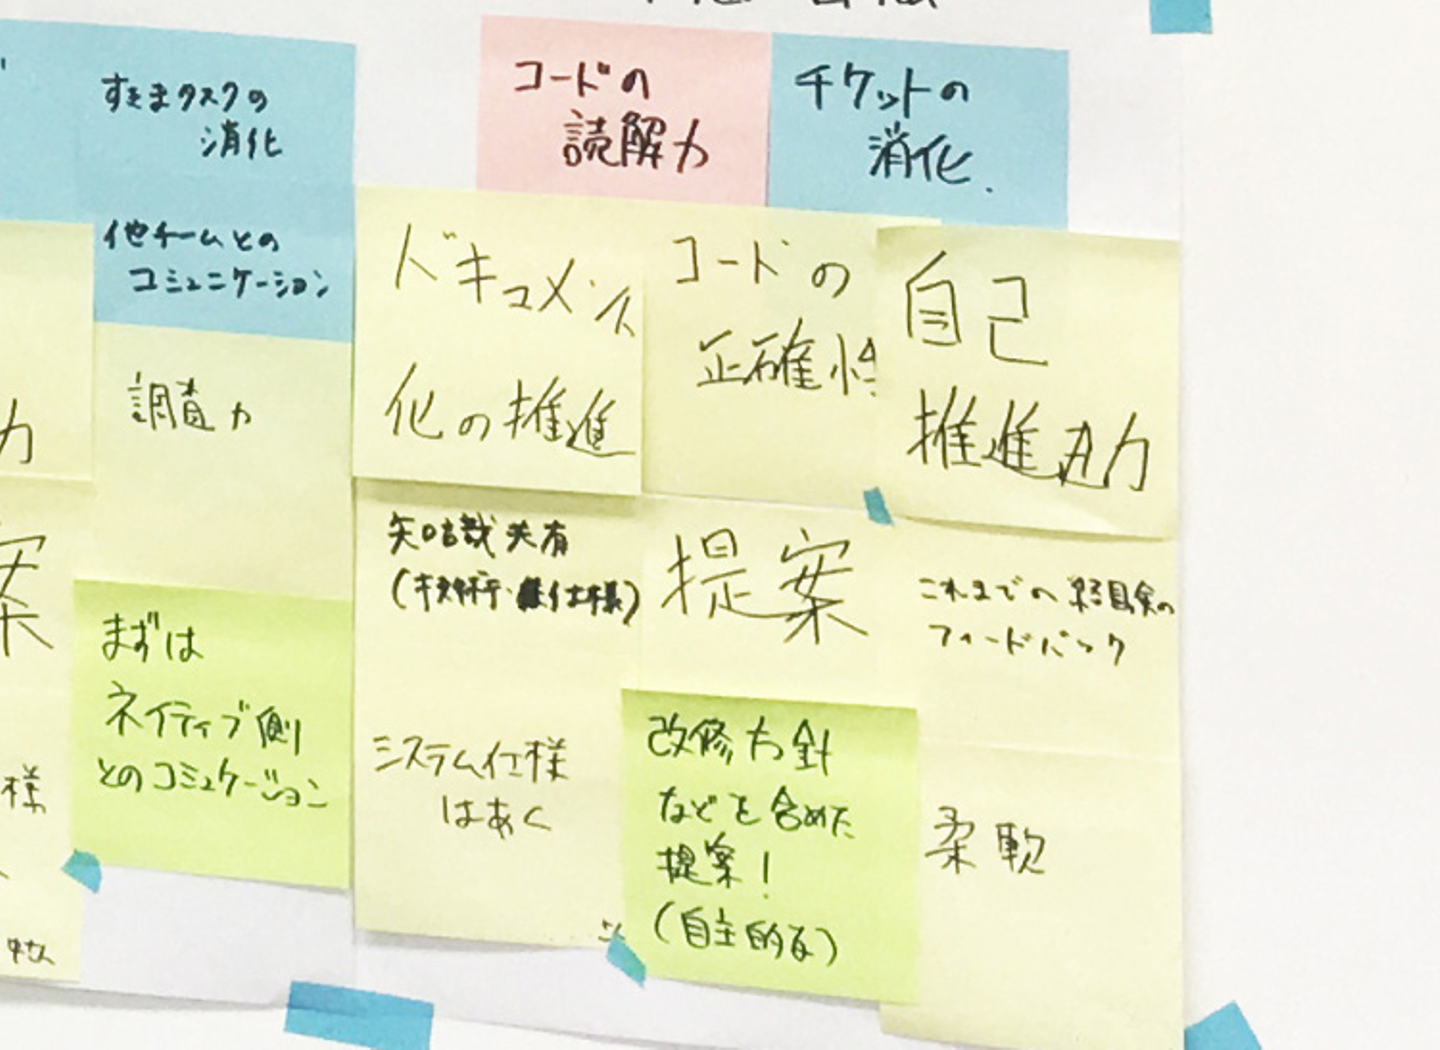 すきまタスクの
消化
他チームとの
コミュニケーション
調査力
まずは
ネイティブ側
とのコミュケーション
コードの
読解力
チケットの
消化.
ドキュメント
化の推進
コードの
正確性
自己
推進力
知識共有
(技術・仕様)
提案
これまでの経験の
フィードバック
システム仕様
はあく
改修方針
などを含めた
提案!
(自主的な)
柔軟
力
案
様